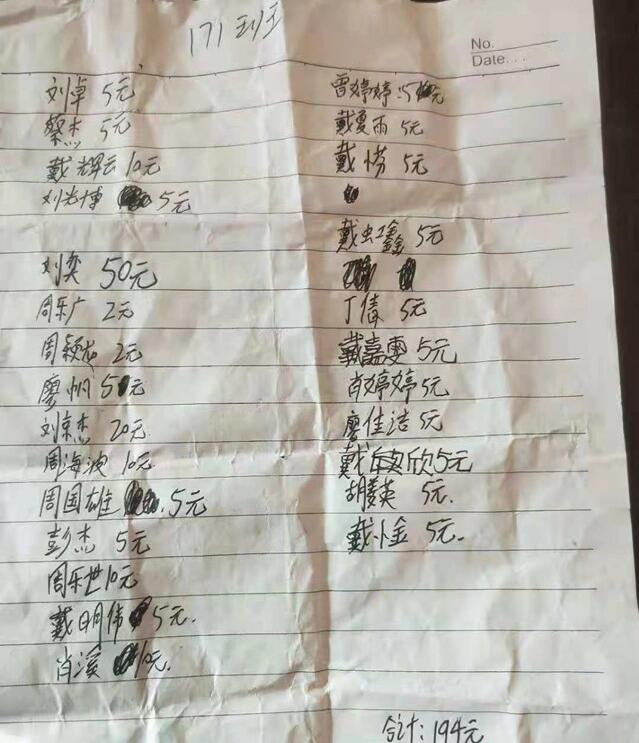 171班
No.
Date...
刘卓 5元
蔡杰 5元
戴辉云 10元
刘光博 5元
刘奕 50元
周乐广 2元
周颖龙 2元
廖帆 5元
刘京杰 20元
周海波 10元
周国雄 5元
彭杰 5元
周乐世 10元
戴明伟 5元.
肖溪 10元.
曾婷婷 5元
戴夏雨 5元
戴涝 5元
戴虹鑫 5元
丁倩 5元
戴嘉雯 5元
肖婷婷 5元
廖佳洁 5元
戴欣 5元
胡菱英 5元.
戴小金 5元.
合计:194元